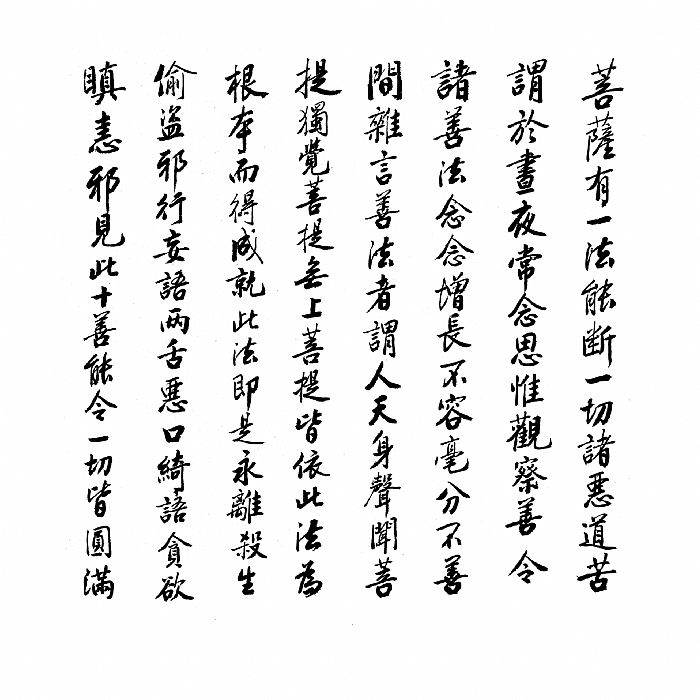 菩薩有一法能断一切諸惡道苦
謂於晝夜常念思惟觀察善令
諸善法念念增長不容毫分不善
間雜言善法者謂人天身聲聞菩
提獨覺菩提無上菩提皆依此法為
根本而得成就此法即是永離殺生
偷盜邪行妄語两舌惡口綺語貪欲
瞋恚邪見此十善能令一切皆圓滿